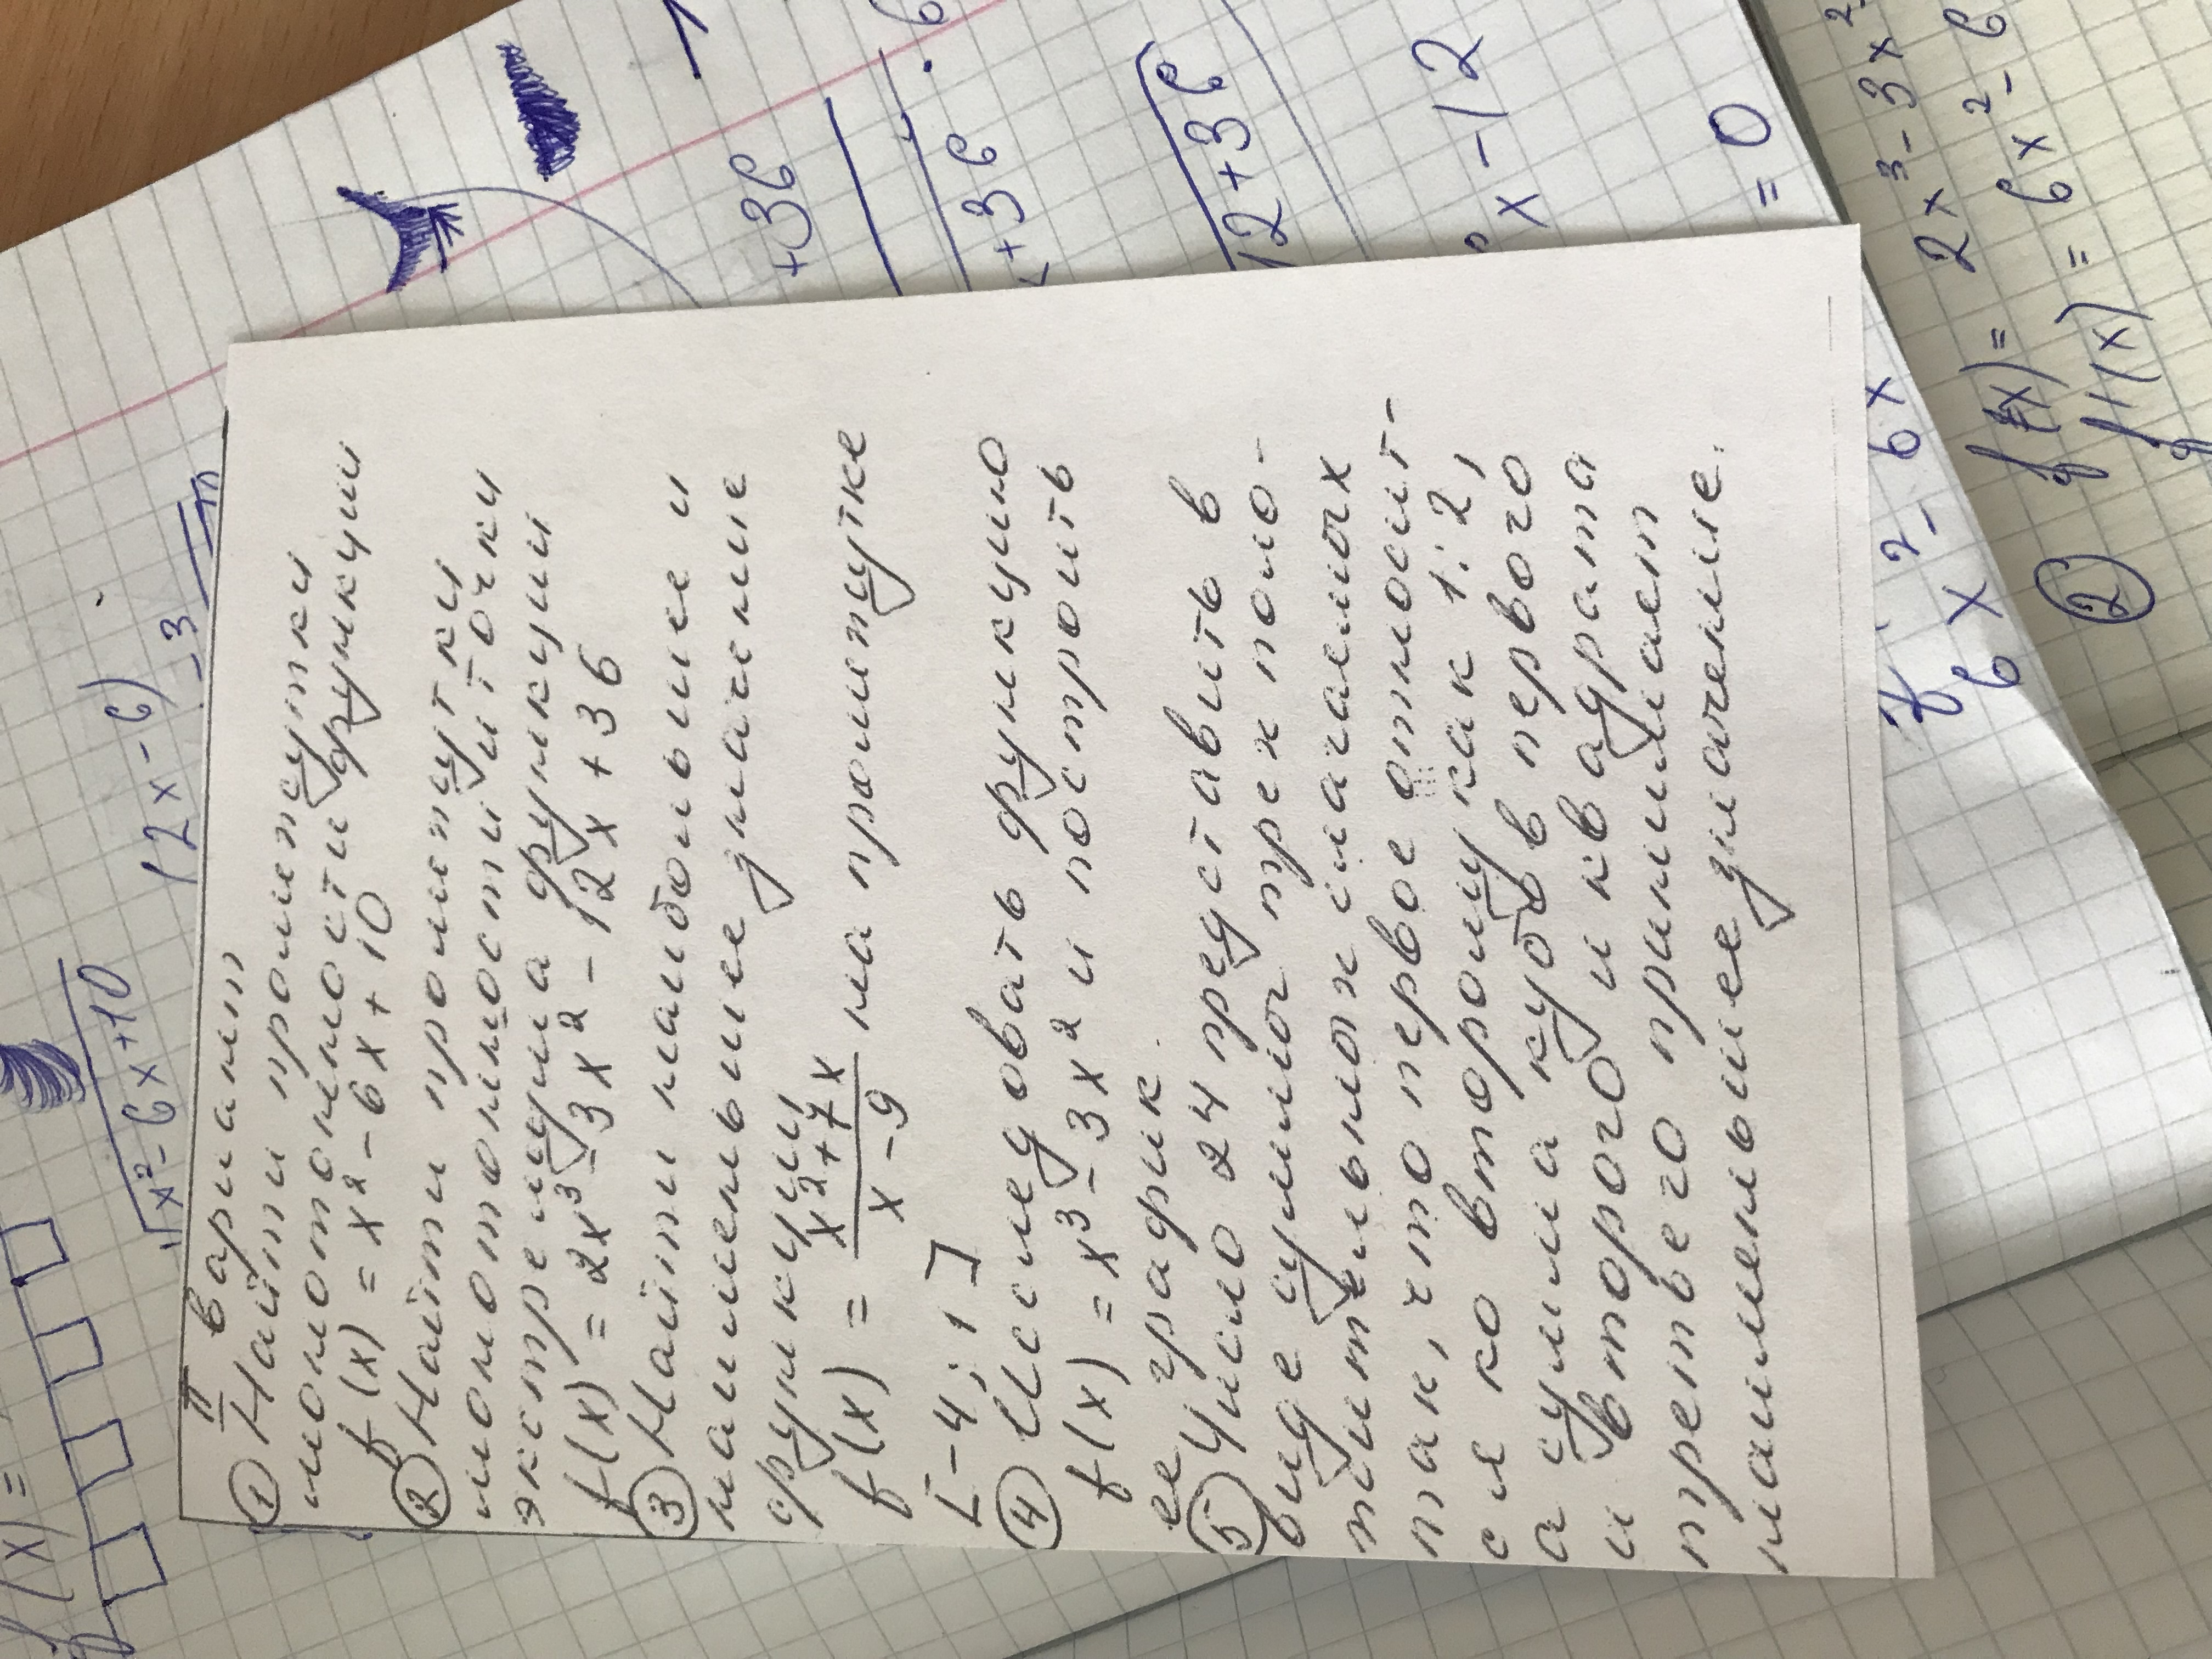 II вариант
① Найти промежутки
монотонности функции
f(x) = x² - 6x + 10
② Найти промежутки
монотонности и точки
экстремума функции
f(x) = 2x³ - 3x² - 12x + 36
③ Найти наибольшее и
наименьшее значение
функции
f(x) = (x² + 7x)/(x - 9) на промежутке
[-4; 1]
④ Исследовать функцию
f(x) = x³ - 3x² и построить
ее график.
⑤ Число 24 представить в
виде суммы трех поло-
жительных слагаемых
так, что первое относит-
ся ко второму как 1:2,
а сумма кубов первого
и второго и квадрата
третьего принимает
наименьшее значение.
f(x) =
√x² - 6x + 10
12x - 6)
- 3
+36
+36
12+36
x - 12
= 0
6x² - 6x
② f(x) = 2x³ - 3x²
f'(x) = 6x² - 6